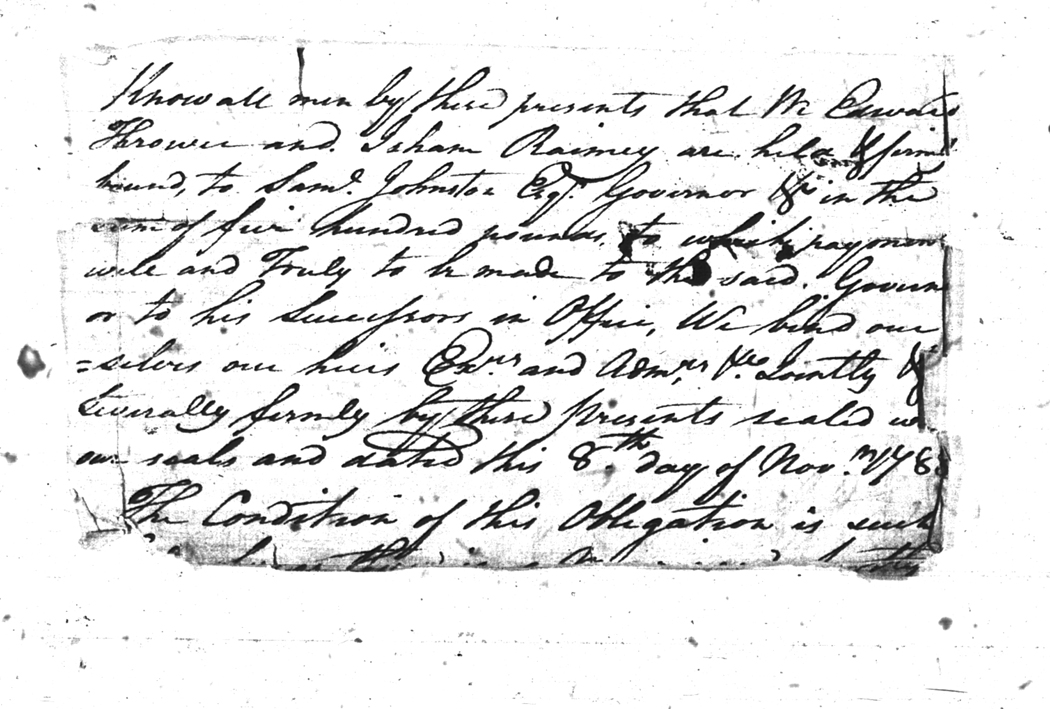 Know all men by these presents that We Edward
Thrower and Isham Raimey are held & firm
bound, to Saml. Johnston Esqr. Governor &c in the
sum of five hundred pounds, to which paymen
well and Truly to be made to the said. Govern
or to his Successors in Office, We bind our
=selves our heirs Exrs and Admrs &c Jointly &
Severally firmly by these Presents sealed w
our seals and dated this 8th day of Novm 178
The Condition of this Obligation is such